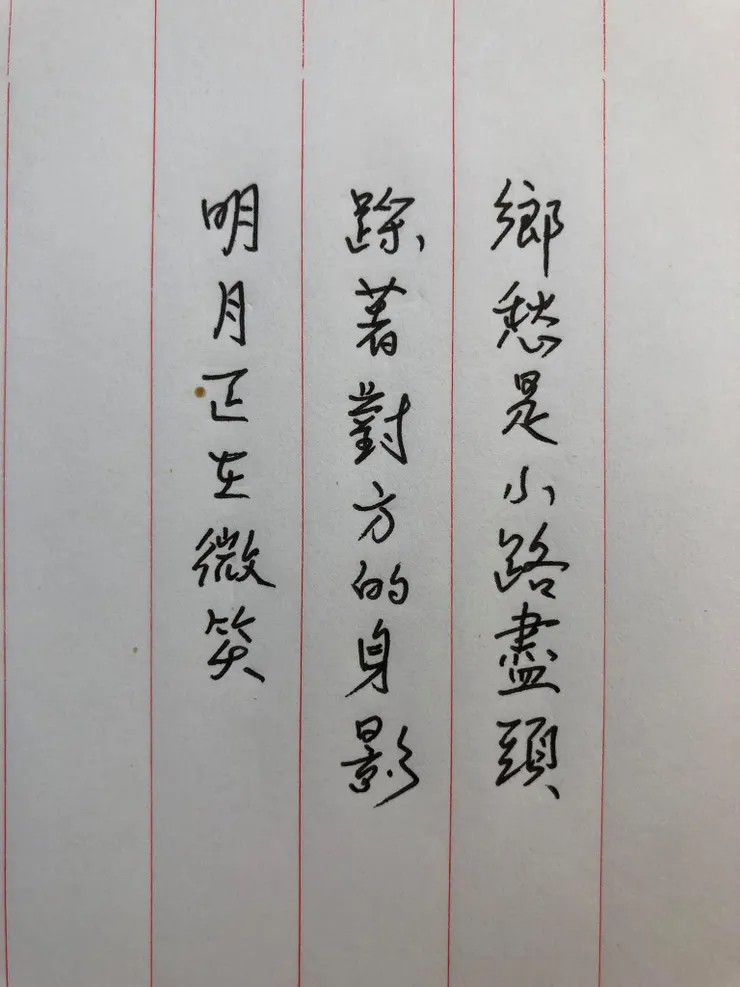 鄉愁是小路盡頭
踩著對方的身影
明月正在微笑